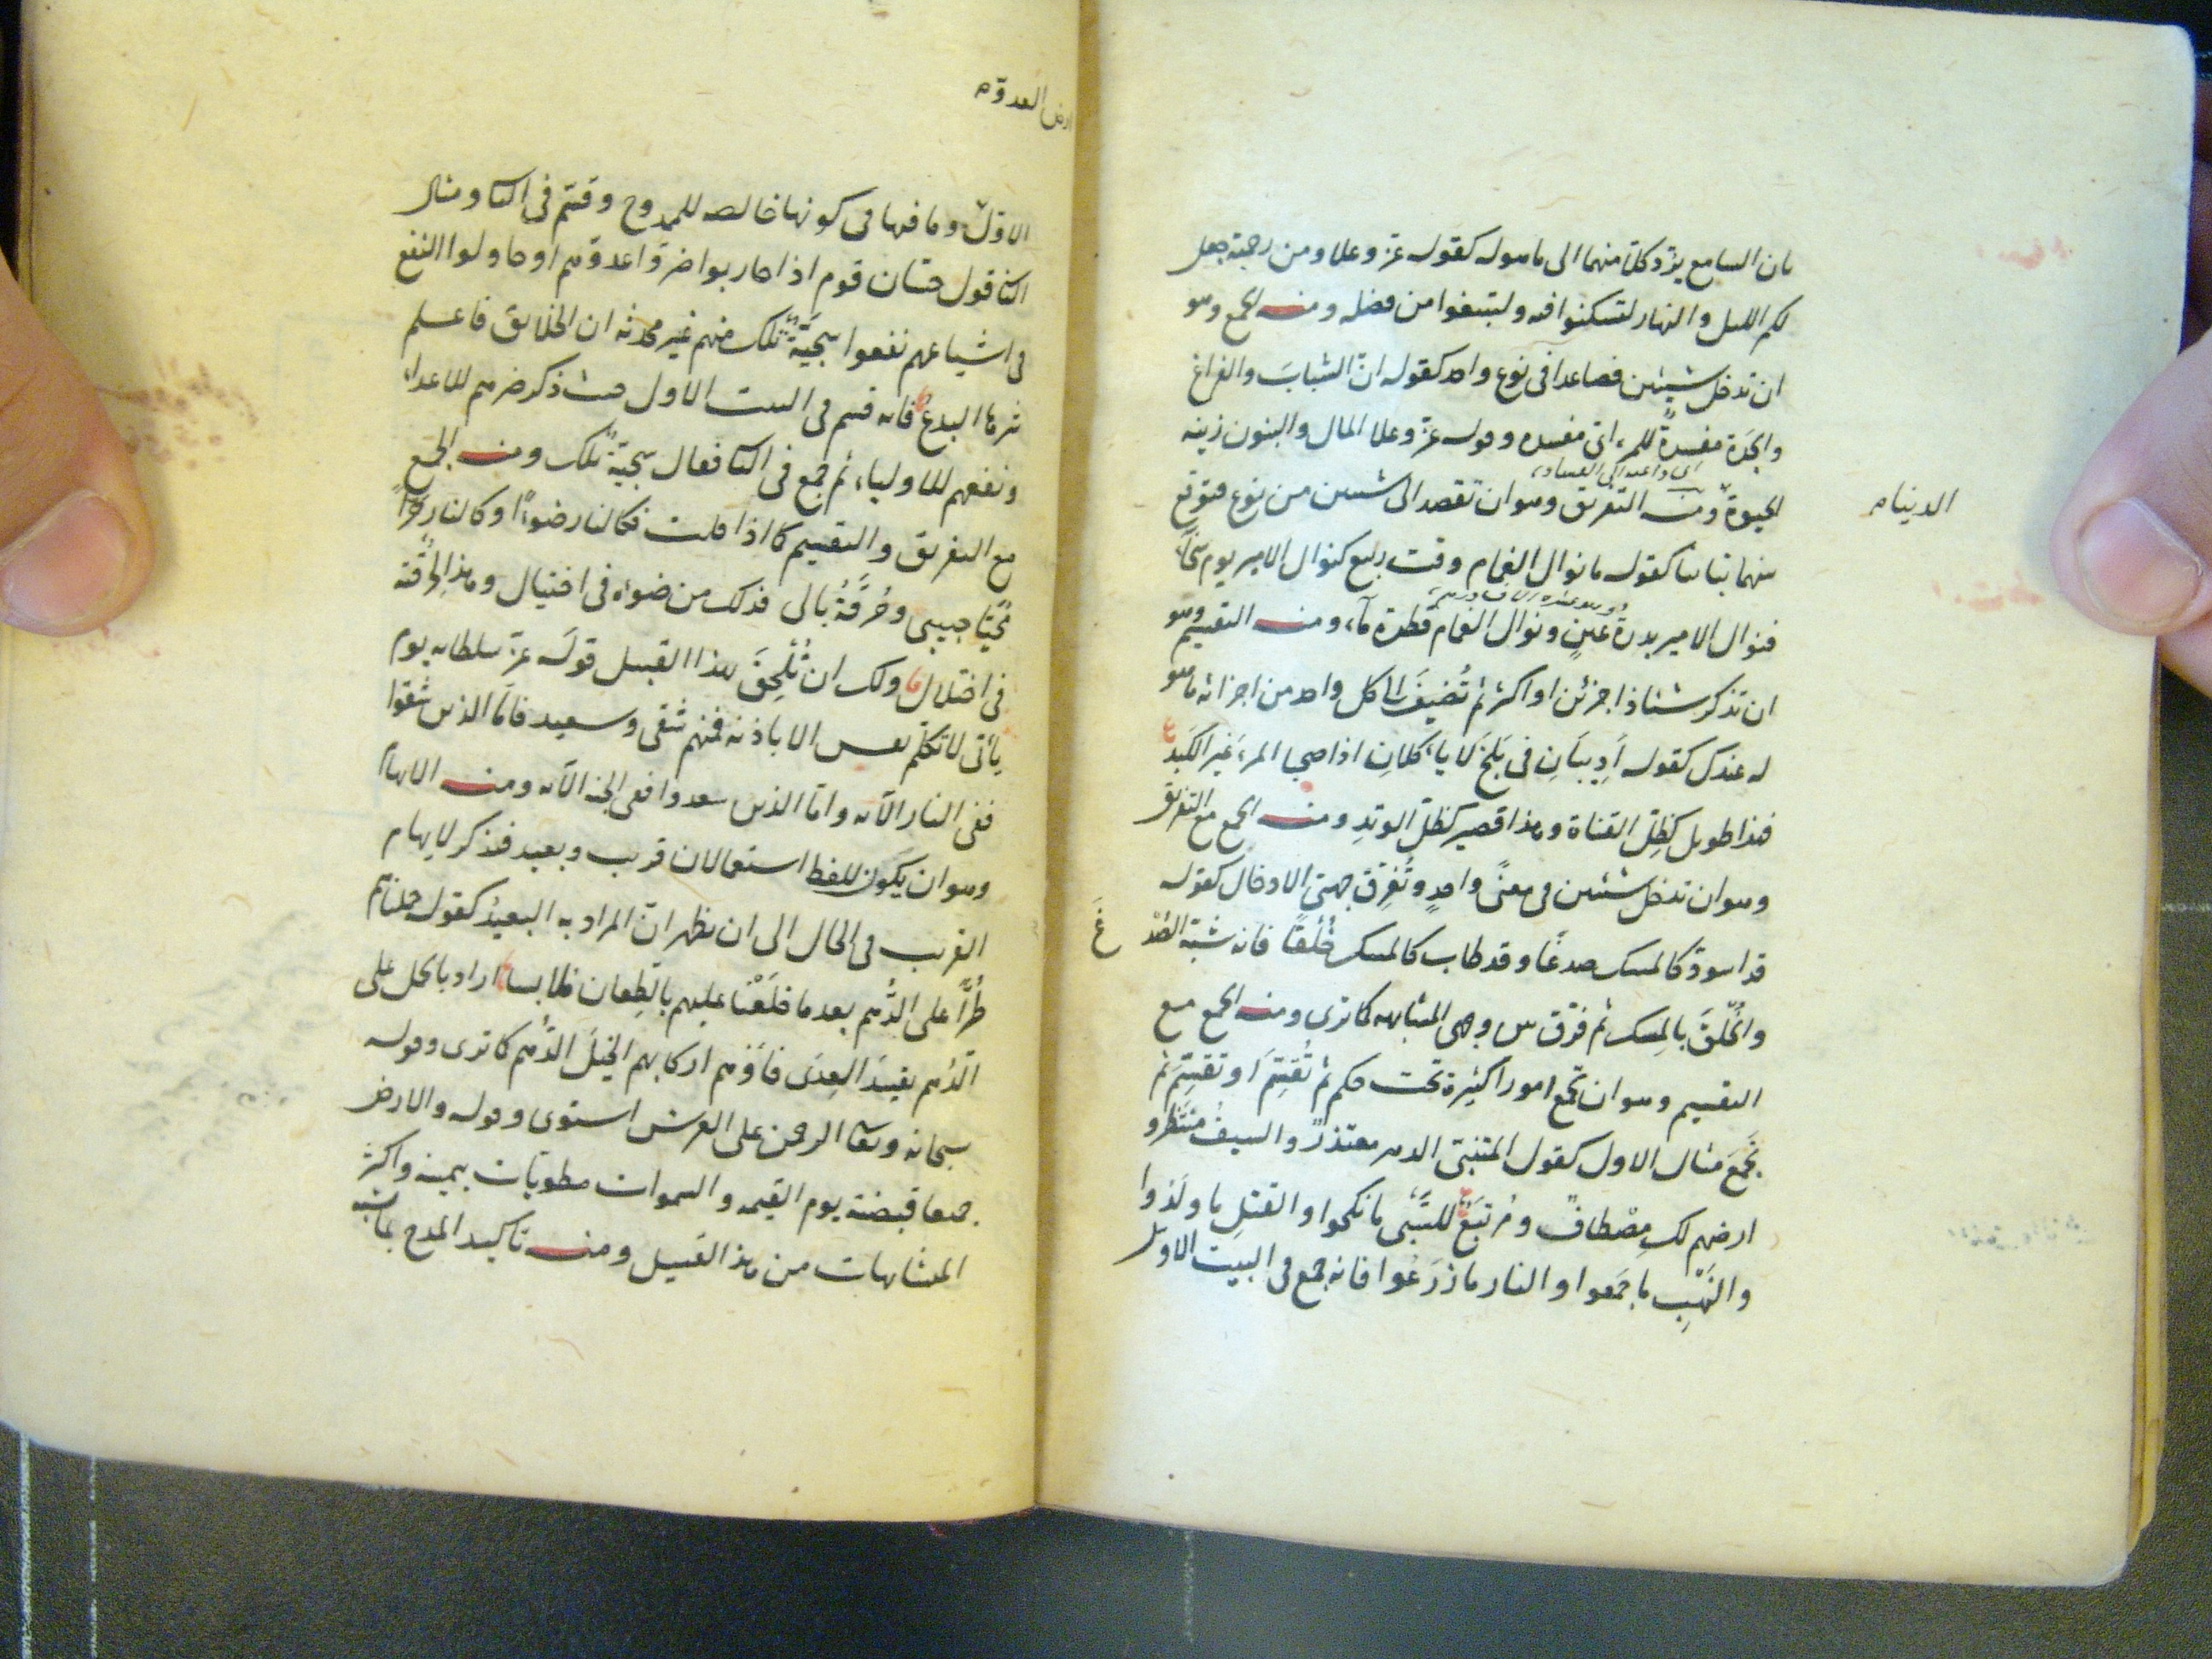 بان السامع يرد كلا منهما الى ما هو له كقوله عز وعلا ومن رحمته جعل
لكم الليل والنهار لتسكنوا فيه ولتبتغوا من فضله ومنه الجمع وهو
ان تدخل شيئين فصاعدا فى نوع واحد كقوله انّ الشبابَ والفراغ
والجدَة مفسدةٌ للمرء اى مفسده وقوله عز وعلا المال والبنون زينة
اى داعية الى الفساد
الحيوة ومنه التفريق وهو ان تقصد الى شيئين من نوع فتوقع
الدنيا
بينهما تباينا كقوله ما نوال الغمام وقت ربيع كنوال الامير يوم سخاءٍ
فنوال الامير بدرةُ عينٍ ونوال الغمام قطرة ماء ومنه التقسيم وهو
ان تذكر شيئا ذا جزئين او اكثر ثم تُضيفَ الى كل واحد من اجزائه ما هو
له عندك كقوله اَدِيبَانِ فى بَلخَ لا يأكلانِ اذا صحبا المرءَ غير الكَبد
فهذا طويل كظِلّ القناة وهذا قصير كظلّ الوتدِ ومنه الجمع مع التفريق
وهو ان تدخل شيئين فى معنًى واحدٍ وتُفرِق جهتى الادخال كقوله
قد اسودّ كالمسك صدغًا وقد طاب كالمسك خُلُقًا فانه شبّه الصُدْغَ
والخُلقَ بالمِسك ثم فرّق بين وجهى المشابهة كما ترى ومنه الجمع مع
التقسيم وهو ان تجمع امورا كثيرة تحت حكم ثم تُقسّمَ او تقسّمَ ثم
تجمَعَ مثال الاول كقول المتنبى الدهر معتذرٌ والسيفُ منتظرٌ و
ارضهم لك مِصْطافٌ ومُرتَبَعٌ للسَّبْى ما نكحوا والقتلِ ما ولَدوا
والنَهْبِ ما جَمعوا والنار ما زرَعُوا فانه جمع فى البيت الاول
ارض العدوّ
الاول وما فيها فى كونها خالصة للممدوح وقسّم فى الثا ومثال
الثا قول حسّان قوم اذا حاربوا ضرّوا عدوّهم او حاولوا النفع
فى اشياعهم نفعوا سَجيّةٌ تلك منهم غير محدثة ان الخلايق فاعلم
شرها البدع فانه قسم فى البيت الاول حيث ذكر ضرهم للاعداء
ونفعهم للاولياء ثم جمع فى الثا فقال سجيّةٌ تلك ومنه الجمع
مع التفريق والتقسيم كما اذا قلت فكالنار ضوءًا وكالنار حرًّا
مُحيّا حبيبى وحُرقَةُ بالى فذلك من ضوئه فى اختيال وهذا لِحُرقته
فى اختلال ولك ان تُلْحِقَ بهذا القبيل قولَه عز سلطانه يوم
يأتى لا تكلّم نفس الا باذنه فمنهم شقى وسعيد فامّا الذين شقوا
ففى النار الآية وامّا الذين سعدوا ففى الجنة الآية ومنه الايهام
وهو ان يكون للفظ استعمالان قريب وبعيد فيذكر لايهام
القريب فى الحال الى ان يظهر انّ المراد به البعيدُ كقوله حملناهم
طُرًّا على الدُّهم بعد ما خلَعْنا عليهم بالطِعان ملابسا اراد بالحمل على
الدُّهم تقييدَ العِدى فاَوْهم اركابهم الخيلَ الدُّهم كما ترى وقوله
سبحانه وتعا الرحمن على العرش استوى وقوله والارض
جميعا قبضته يوم القيمة والسموات مطويّات بيمينه واكثر
المتشابهات من هذا القبيل ومنه تاكيد المدح بما يشبه